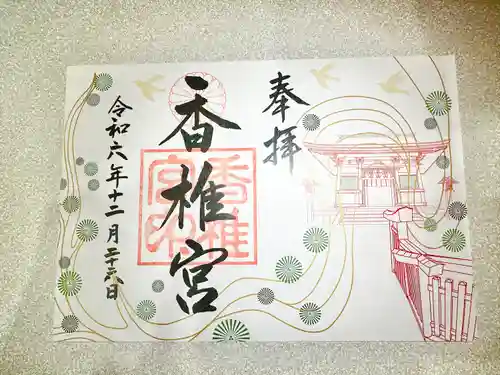 奉拝
香椎宮
令和六年十二月二十八日
香椎
宮印